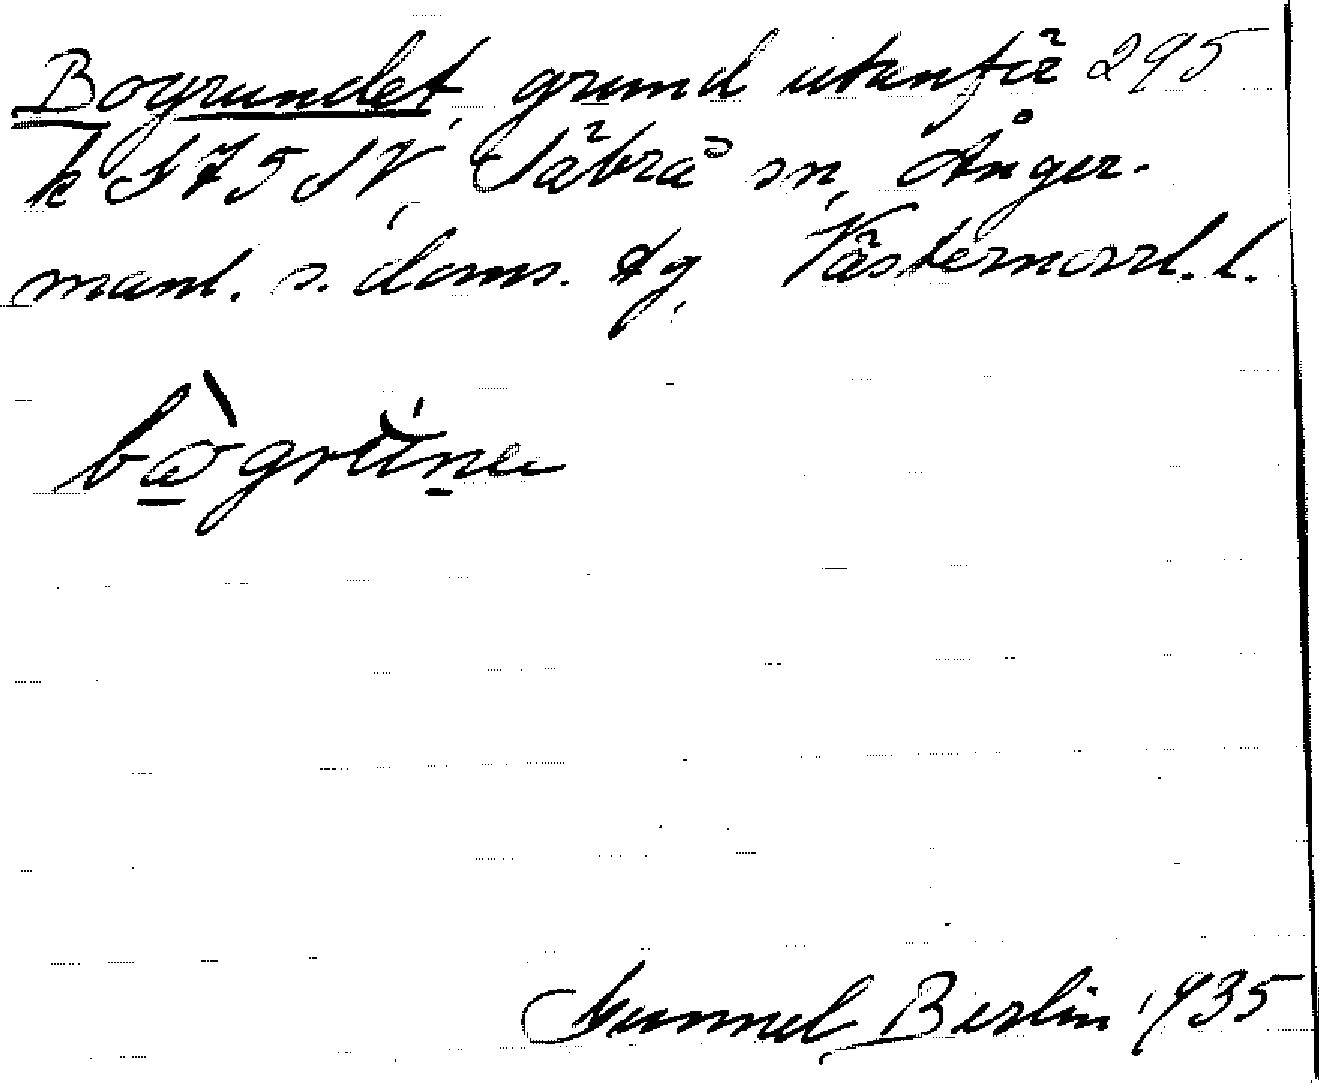 Bogrundet, grund utanför 295
k S 75 SV, Säbrå sn, Ånger-
manl. s. doms. tg, Västernorrl. l.
Gunnel Berlin 1935